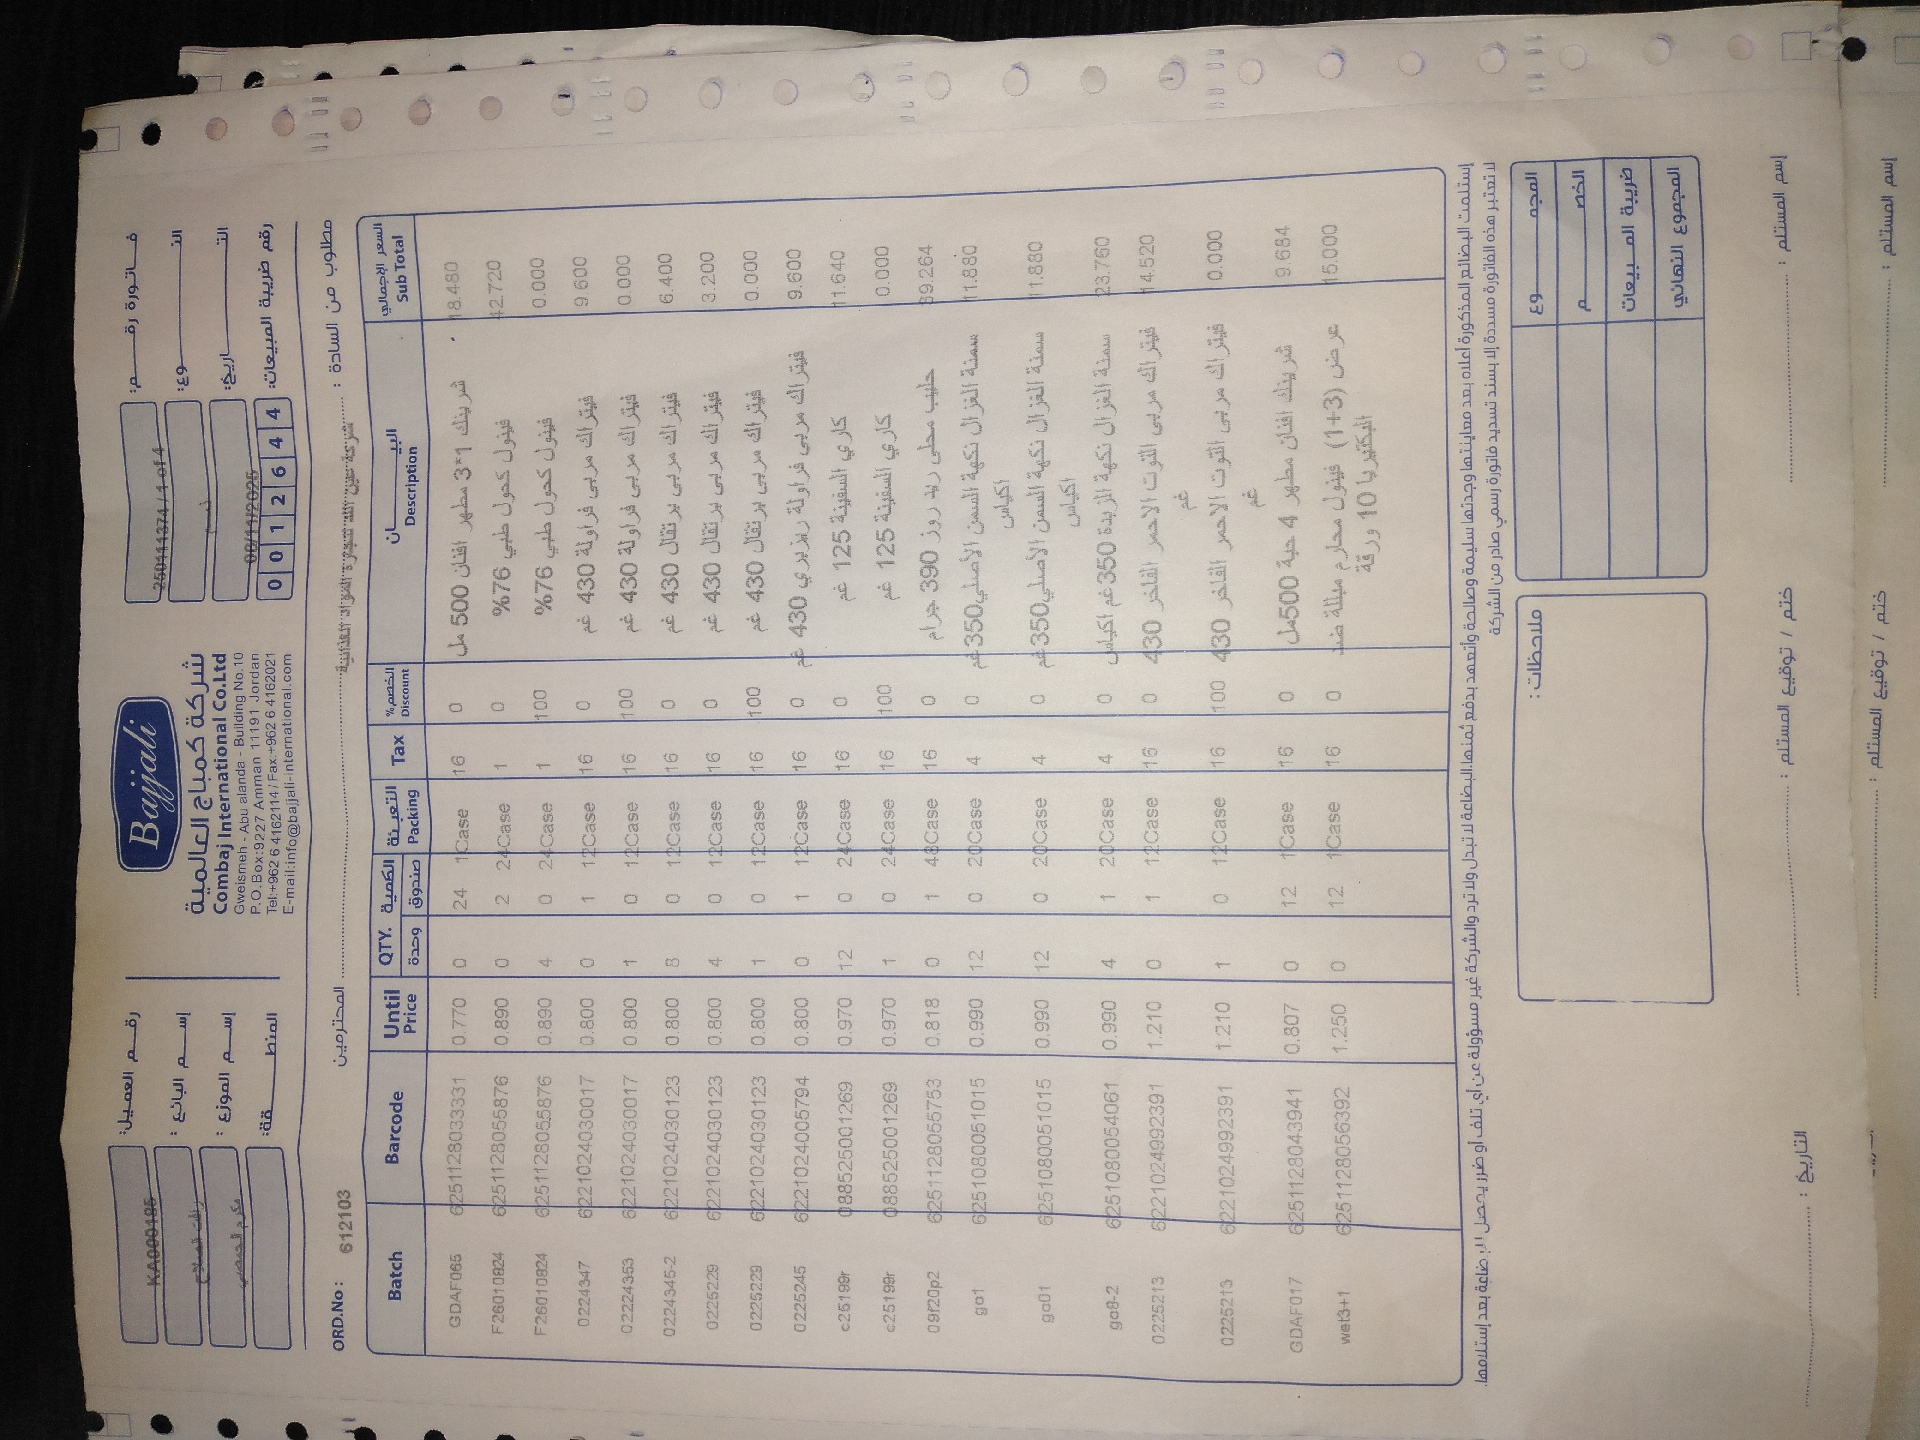 Bajjali
شركة كمباج العالمية
Combaj International Co.Ltd
Gweisneh - Abu alanda - Building No.10
P.O.Box:9227 Amman 11191 Jordan
Tel:+962 6 4162114 / Fax:+962 6 4162021
E-mail:info@bajjali-international.com
رقم العميل: KA000185
إسم البائع :
إسم الموزع :
المنطقة:
فاتورة رقم: 250111374/1 of 4
النوع:
التاريخ:
رقم ضريبة المبيعات: 0 0 1 2 6 4 4
مطلوب من السادة : المحترمين
ORD.No : 612103
Batch Barcode Until Price QTY. الكمية وحدة صندوق التعبئة Packing Tax الخصم% Discount البيان Description السعر الإجمالي Sub Total
GDAF065 6251128033331 0.770 0 24 1Case 16 0 شرينك 1*3 مطهر افنان 500 مل 18.480
F26010824 6251128055876 0.890 0 2 24Case 1 0 فينول كحول طبي 76% 42.720
F26010824 6251128055876 0.890 4 0 24Case 1 100 فينول كحول طبي 76% 0.000
0224347 6221024030017 0.800 0 1 12Case 16 0 فيتراك مربى فراولة 430 غم 9.600
02224353 6221024030017 0.800 1 0 12Case 16 100 فيتراك مربى فراولة 430 غم 0.000
0224345-2 6221024030123 0.800 8 0 12Case 16 0 فيتراك مربى برتقال 430 غم 6.400
0225229 6221024030123 0.800 4 0 12Case 16 0 فيتراك مربى برتقال 430 غم 3.200
0225229 6221024030123 0.800 1 0 12Case 16 100 فيتراك مربى برتقال 430 غم 0.000
0225245 6221024005794 0.800 0 1 12Case 16 0 فيتراك مربى فراولة رزبري 430 غم 9.600
c25199r 088525001269 0.970 12 0 24Case 16 0 كاري السفينة 125 غم 11.640
c25199r 088525001269 0.970 1 0 24Case 16 100 كاري السفينة 125 غم 0.000
09f20p2 6251128055753 0.818 0 1 48Case 16 0 حليب محلى ريد روز 390 جرام 39.264
go1 6251080051015 0.990 12 0 20Case 4 0 سمنة الغزال نكهة السمن الاصلي350غم اكياس 11.880
go01 6251080051015 0.990 12 0 20Case 4 0 سمنة الغزال نكهة السمن الاصلي350غم اكياس 11.880
go8-2 6251080054061 0.990 4 1 20Case 4 0 سمنة الغزال نكهة الزبدة 350غم اكياس 23.760
0225213 6221024992391 1.210 0 1 12Case 16 0 فيتراك مربى التوت الاحمر الفاخر 430 غم 14.520
0225213 6221024992391 1.210 1 0 12Case 16 100 فيتراك مربى التوت الاحمر الفاخر 430 غم 0.000
GDAF017 6251128043941 0.807 0 12 1Case 16 0 شرينك افنان مطهر 4 حبة 500مل 9.684
wet3+1 6251128056392 1.250 0 12 1Case 16 0 عرض (3+1) فينول محارم مبللة ضد البكتيريا 10 ورقة 15.000
إستلمت البضائع المذكورة أعلاه بعد معاينتها وجدتها سليمة وصالحة وأتعهد بدفع ثمنها.البضاعة لا تبدل ولا ترد والشركة غير مسؤولة عن أي تلف أو ضرر يحصل للبضاعة بعد إستلامها.
لا تعتبر هذه الفاتورة مسددة إلا بسند تسديد فاتورة رسمي صادر من الشركة
المجموع
الخصم
ضريبة المبيعات
المجموع النهائي
ملاحظات :
إسم المستلم : ختم / توقيع المستلم : التاريخ :
إسم المستلم : ختم / توقيع المستلم :